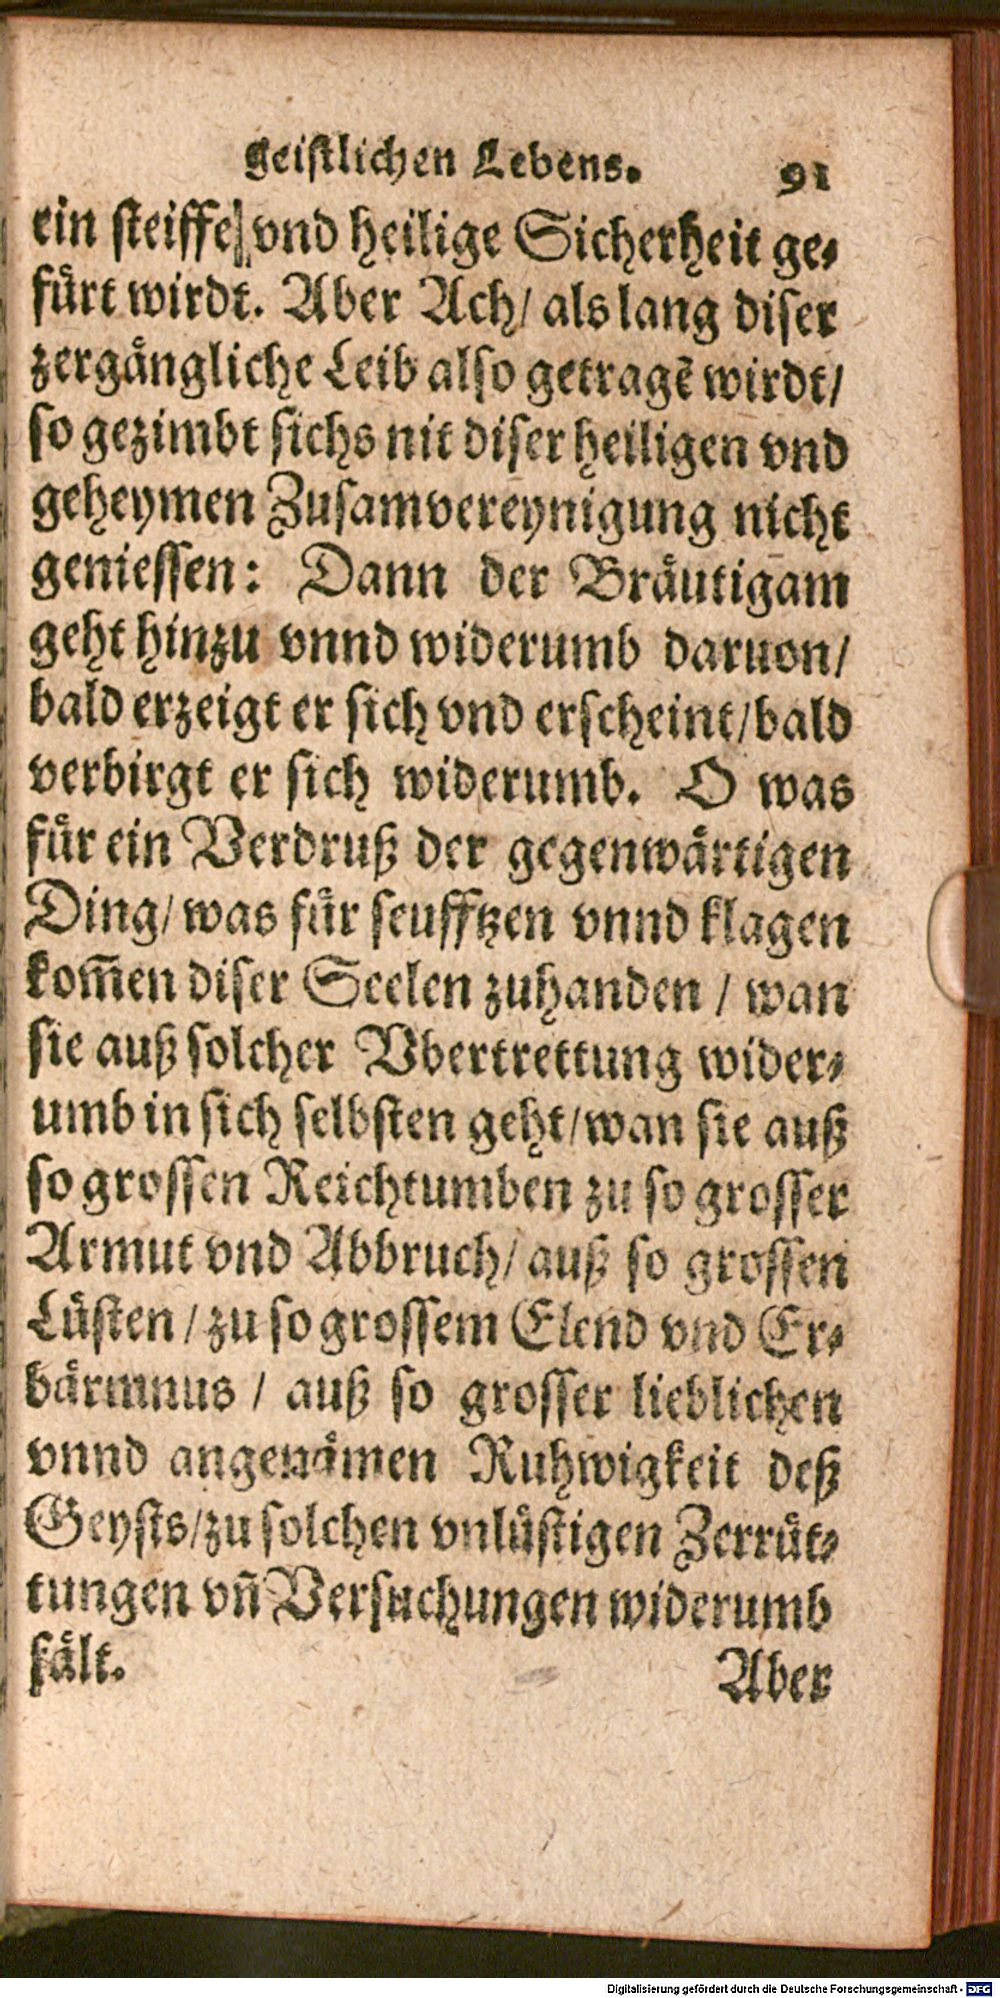 geistlichen Lebens. 91
ein steiffe vnd heilige Sicherheit ge-
fürt wirdt. Aber Ach/ als lang diser
zergängliche Leib also getragẽ wirdt/
so gezimbt sichs nit diser heiligen vnd
geheymen Zusamvereynigung nicht
geniessen: Dann der Bräutigam
geht hinzu vnnd widerumb daruon/
bald erzeigt er sich vnd erscheint/bald
verbirgt er sich widerumb. O was
für ein Verdruß der gegenwärtigen
Ding/ was für seufftzen vnnd klagen
kom̃en diser Seelen zuhanden / wan
sie auß solcher Vbertrettung wider-
umb in sich selbsten geht/wan sie auß
so grossen Reichtumben zu so grosser
Armut vnd Abbruch/ auß so grossen
Lüsten / zu so grossem Elend vnd Er-
bärmnus / auß so grosser lieblichen
vnnd angenämen Ruhwigkeit deß
Geysts/zu solchen vnlüstigen Zerrüt-
tungen vñ Versuchungen widerumb
fält. Aber
Digitalisierung gefördert durch die Deutsche Forschungsgemeinschaft - DFG